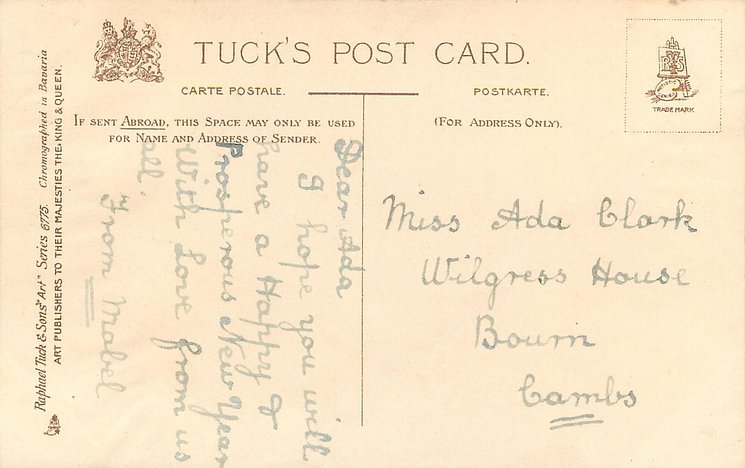 TUCK'S POST CARD.
CARTE POSTALE.
POSTKARTE.
IF SENT ABROAD, THIS SPACE MAY ONLY BE USED
FOR NAME AND ADDRESS OF SENDER.
(FOR ADDRESS ONLY).
TRADE MARK
Raphael Tuck & Sons' "Art" Series 6775. Chromographed in Bavaria
ART PUBLISHERS TO THEIR MAJESTIES THE KING & QUEEN.
Dear Ada
I hope you will
have a Happy &
Prosperous New Year
With Love from us
all.
From Mabel
Miss Ada Clark
Wilgress House
Bourn
Cambs